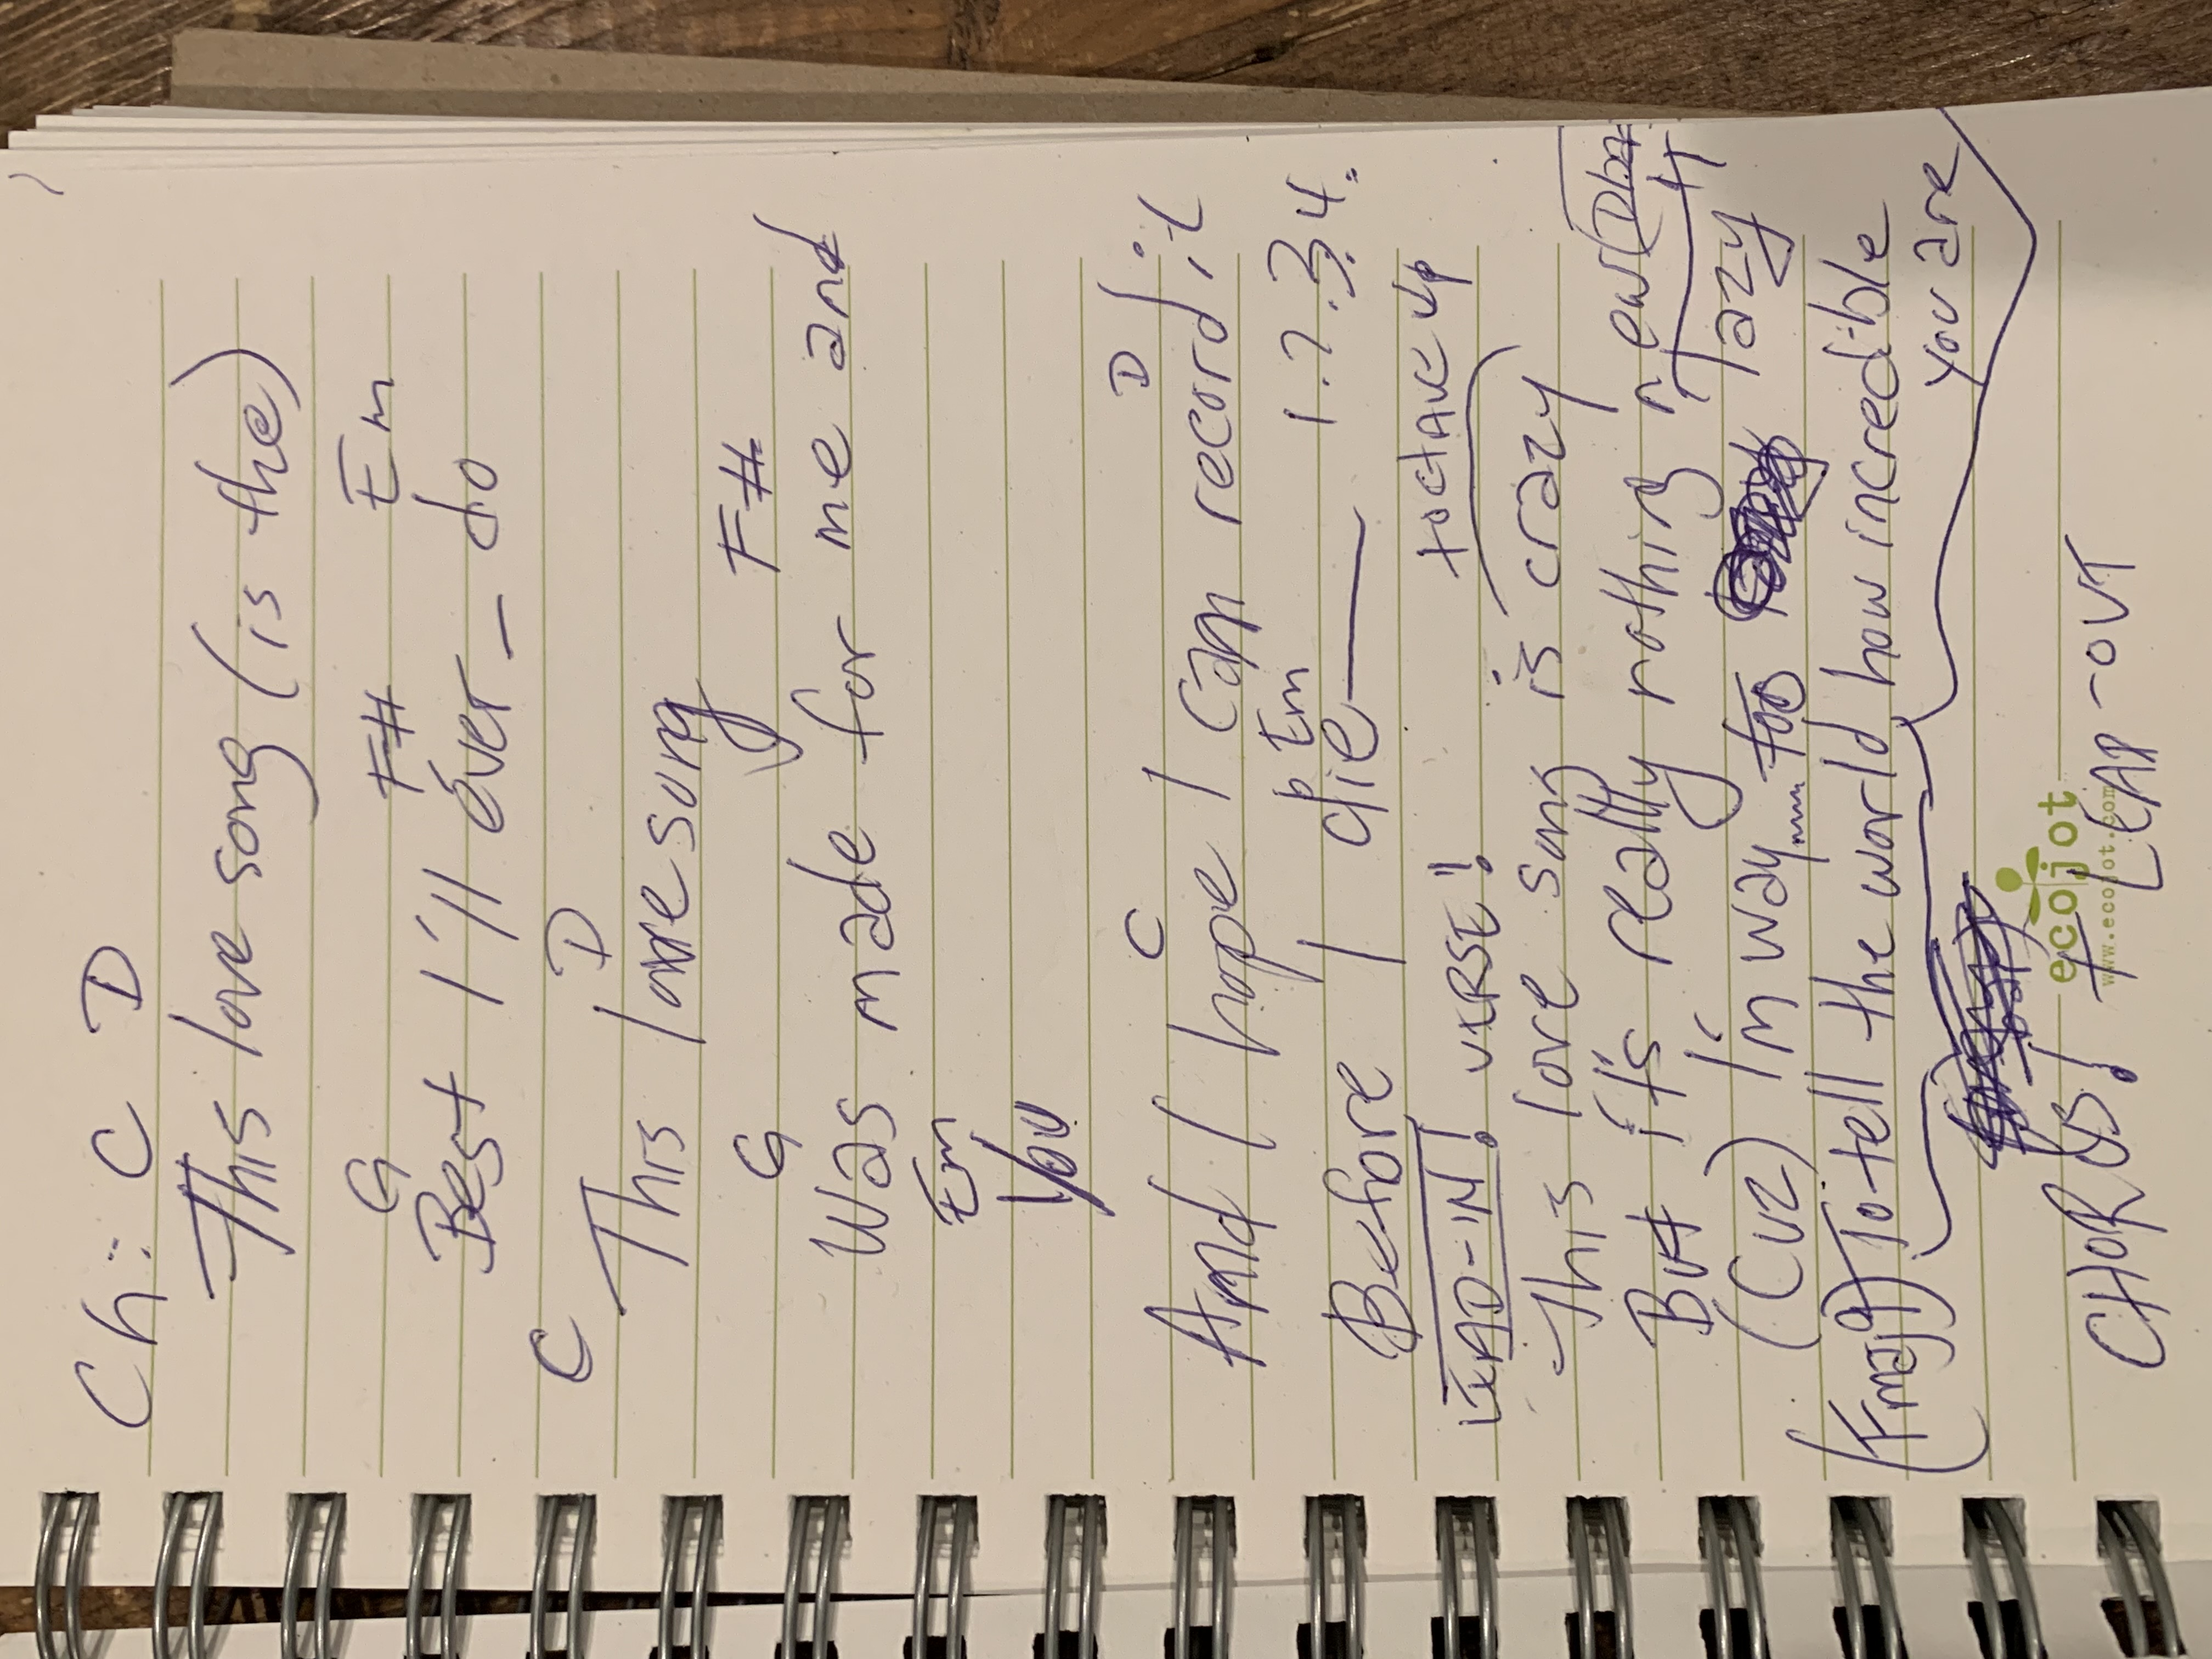 Ch: C D
This love song (is the)
G F# Em
Best I'll ever _ do
C D
This love song
G F#
Was made for me and
Em
You
C D
And I hope I can record it
Em
Before I die 1.2.3.4.
LEAD-IN! VERSE! +OCTAVE UP
This love song is crazy
But it's really nothing new
(Cuz) I'm way too lazy
(Fmaj9) To tell the world how incredible
you are
CHORUS! + LEAD-OUT
ecojot
www.ecojot.com